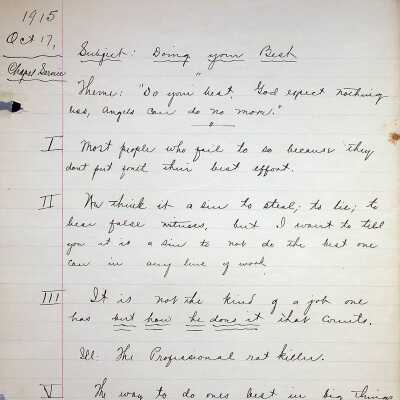 1915
Oct 17,
Chapel Service
Subject: Doing your Best
Theme: "Do your best. God expect nothing
less, Angels can do no more."
I Most people who fail to so because they
dont put forth their best effort.
II We think it a sin to steal; to lie; to
bear false witness. but I want to tell
you it is a sin to not do the best one
can in any line of work
III It is not the kind of a job one
has but how he does it that counts.
Ill: The Professional rat killer.
V The way to do ones best in big things